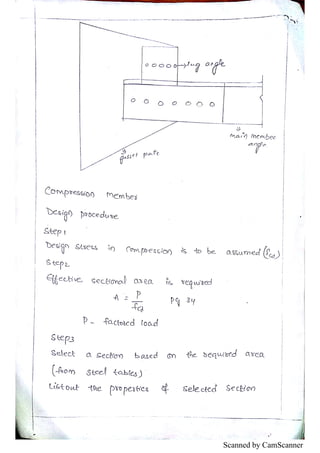 →lug angle
main member
angle
gusset plate
Compression member
Design procedure
Step 1
Design stress in compression is to be assumed (fcd)
Step2
Effective sectional area is required
A = P/fcd pg 34
P - factored load
Step3
Select a section based on the required area
(from steel tables)
List out the properties of selected section
Scanned by CamScanner